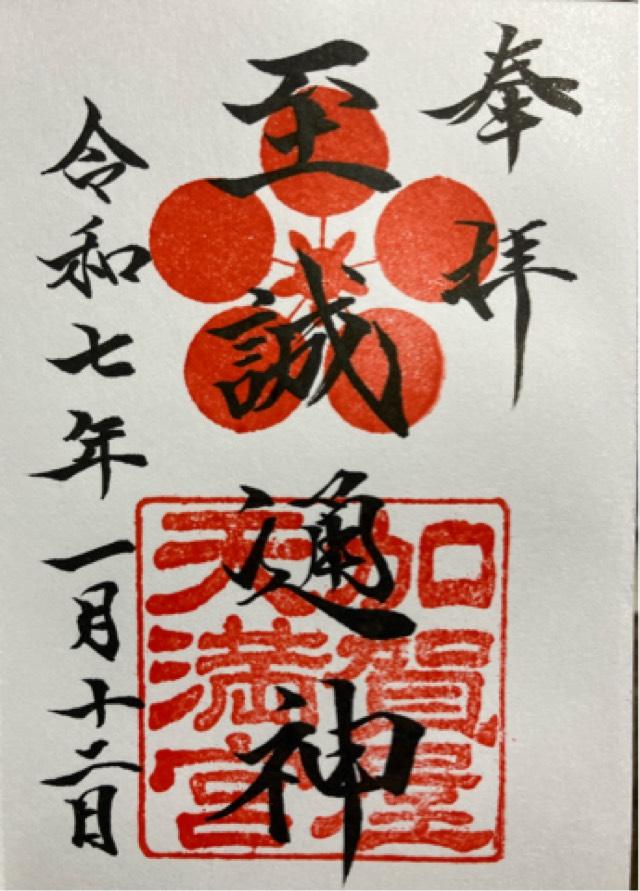 奉拝
至誠通神
加賀屋
天満宮
令和七年一月十二日